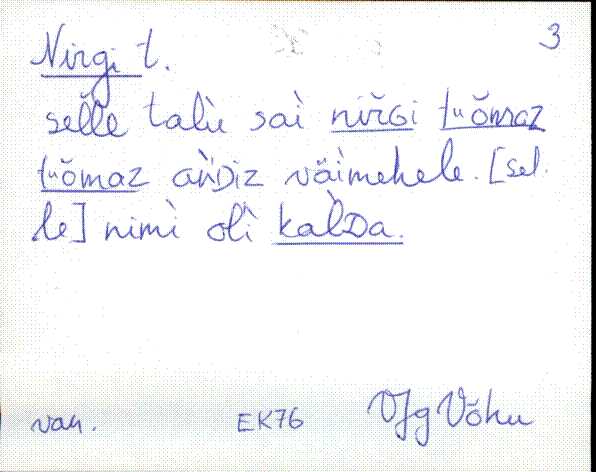 3
Nirgi t.
selle talù sai nirGi tuõmaz
tuõmaz anDiz väimehele. [sel-
le] nimì olì kalDa.
van. EK76 VJg Võhu